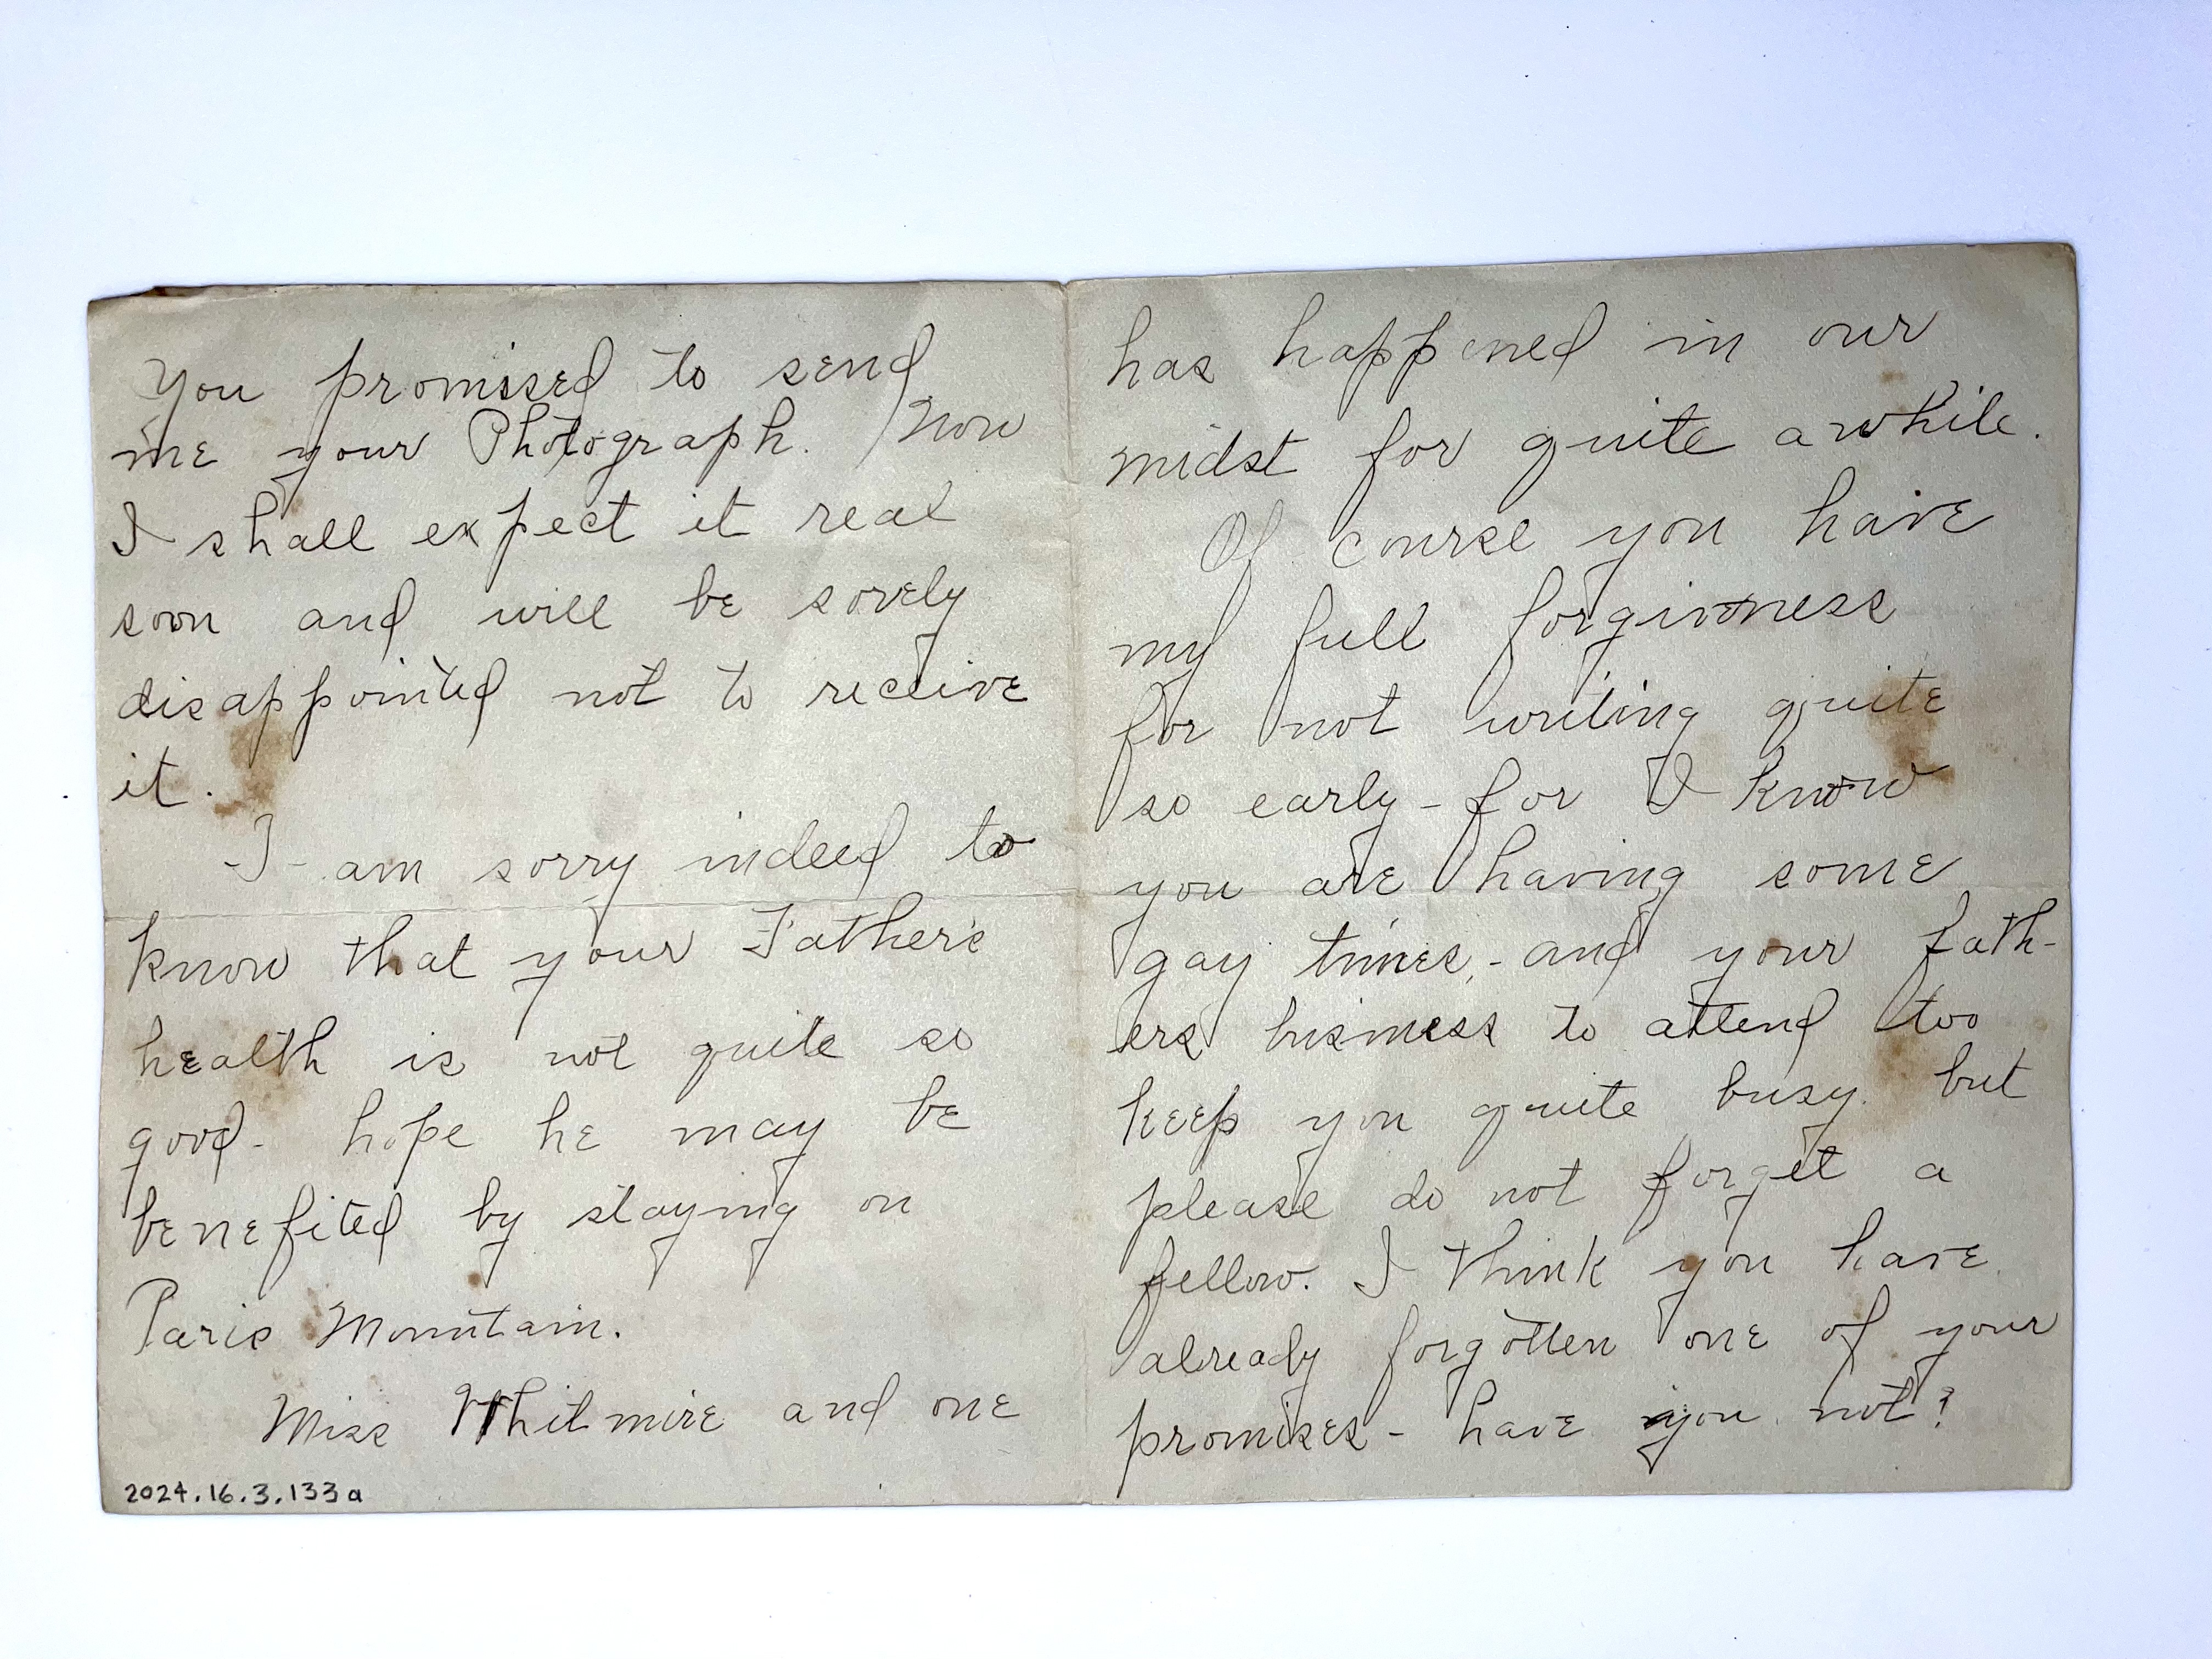 You promissed to send
me your Photograph. Now
I shall expect it real
soon and will be sorely
disappointed not to receive
it.
I am sorry indeed to
know that your Father's
health is not quite so
good - hope he may be
benefited by staying on
Paris Mountain.
Miss Whitmire and one
2024.16.3.133a
has happened in our
midst for quite awhile.
Of course you have
my full forgivness
for not writing quite
so early - for I know
you are having some
gay times, - and your fath-
ers bisiness to attend too
keep you quite busy. but
please do not forget a
fellow. I think you have
already forgotten one of your
promises - have you not?